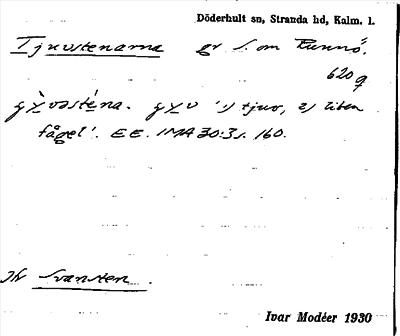 Döderhult sn, Stranda hd, Kalm. l.
Tjuvstenarna gr S. om Runnö.
620 g
tjuv, 2) liten
fågel'. EE. IMA 30:3 s. 160.
Hr Svansten.
Ivar Modéer 1930